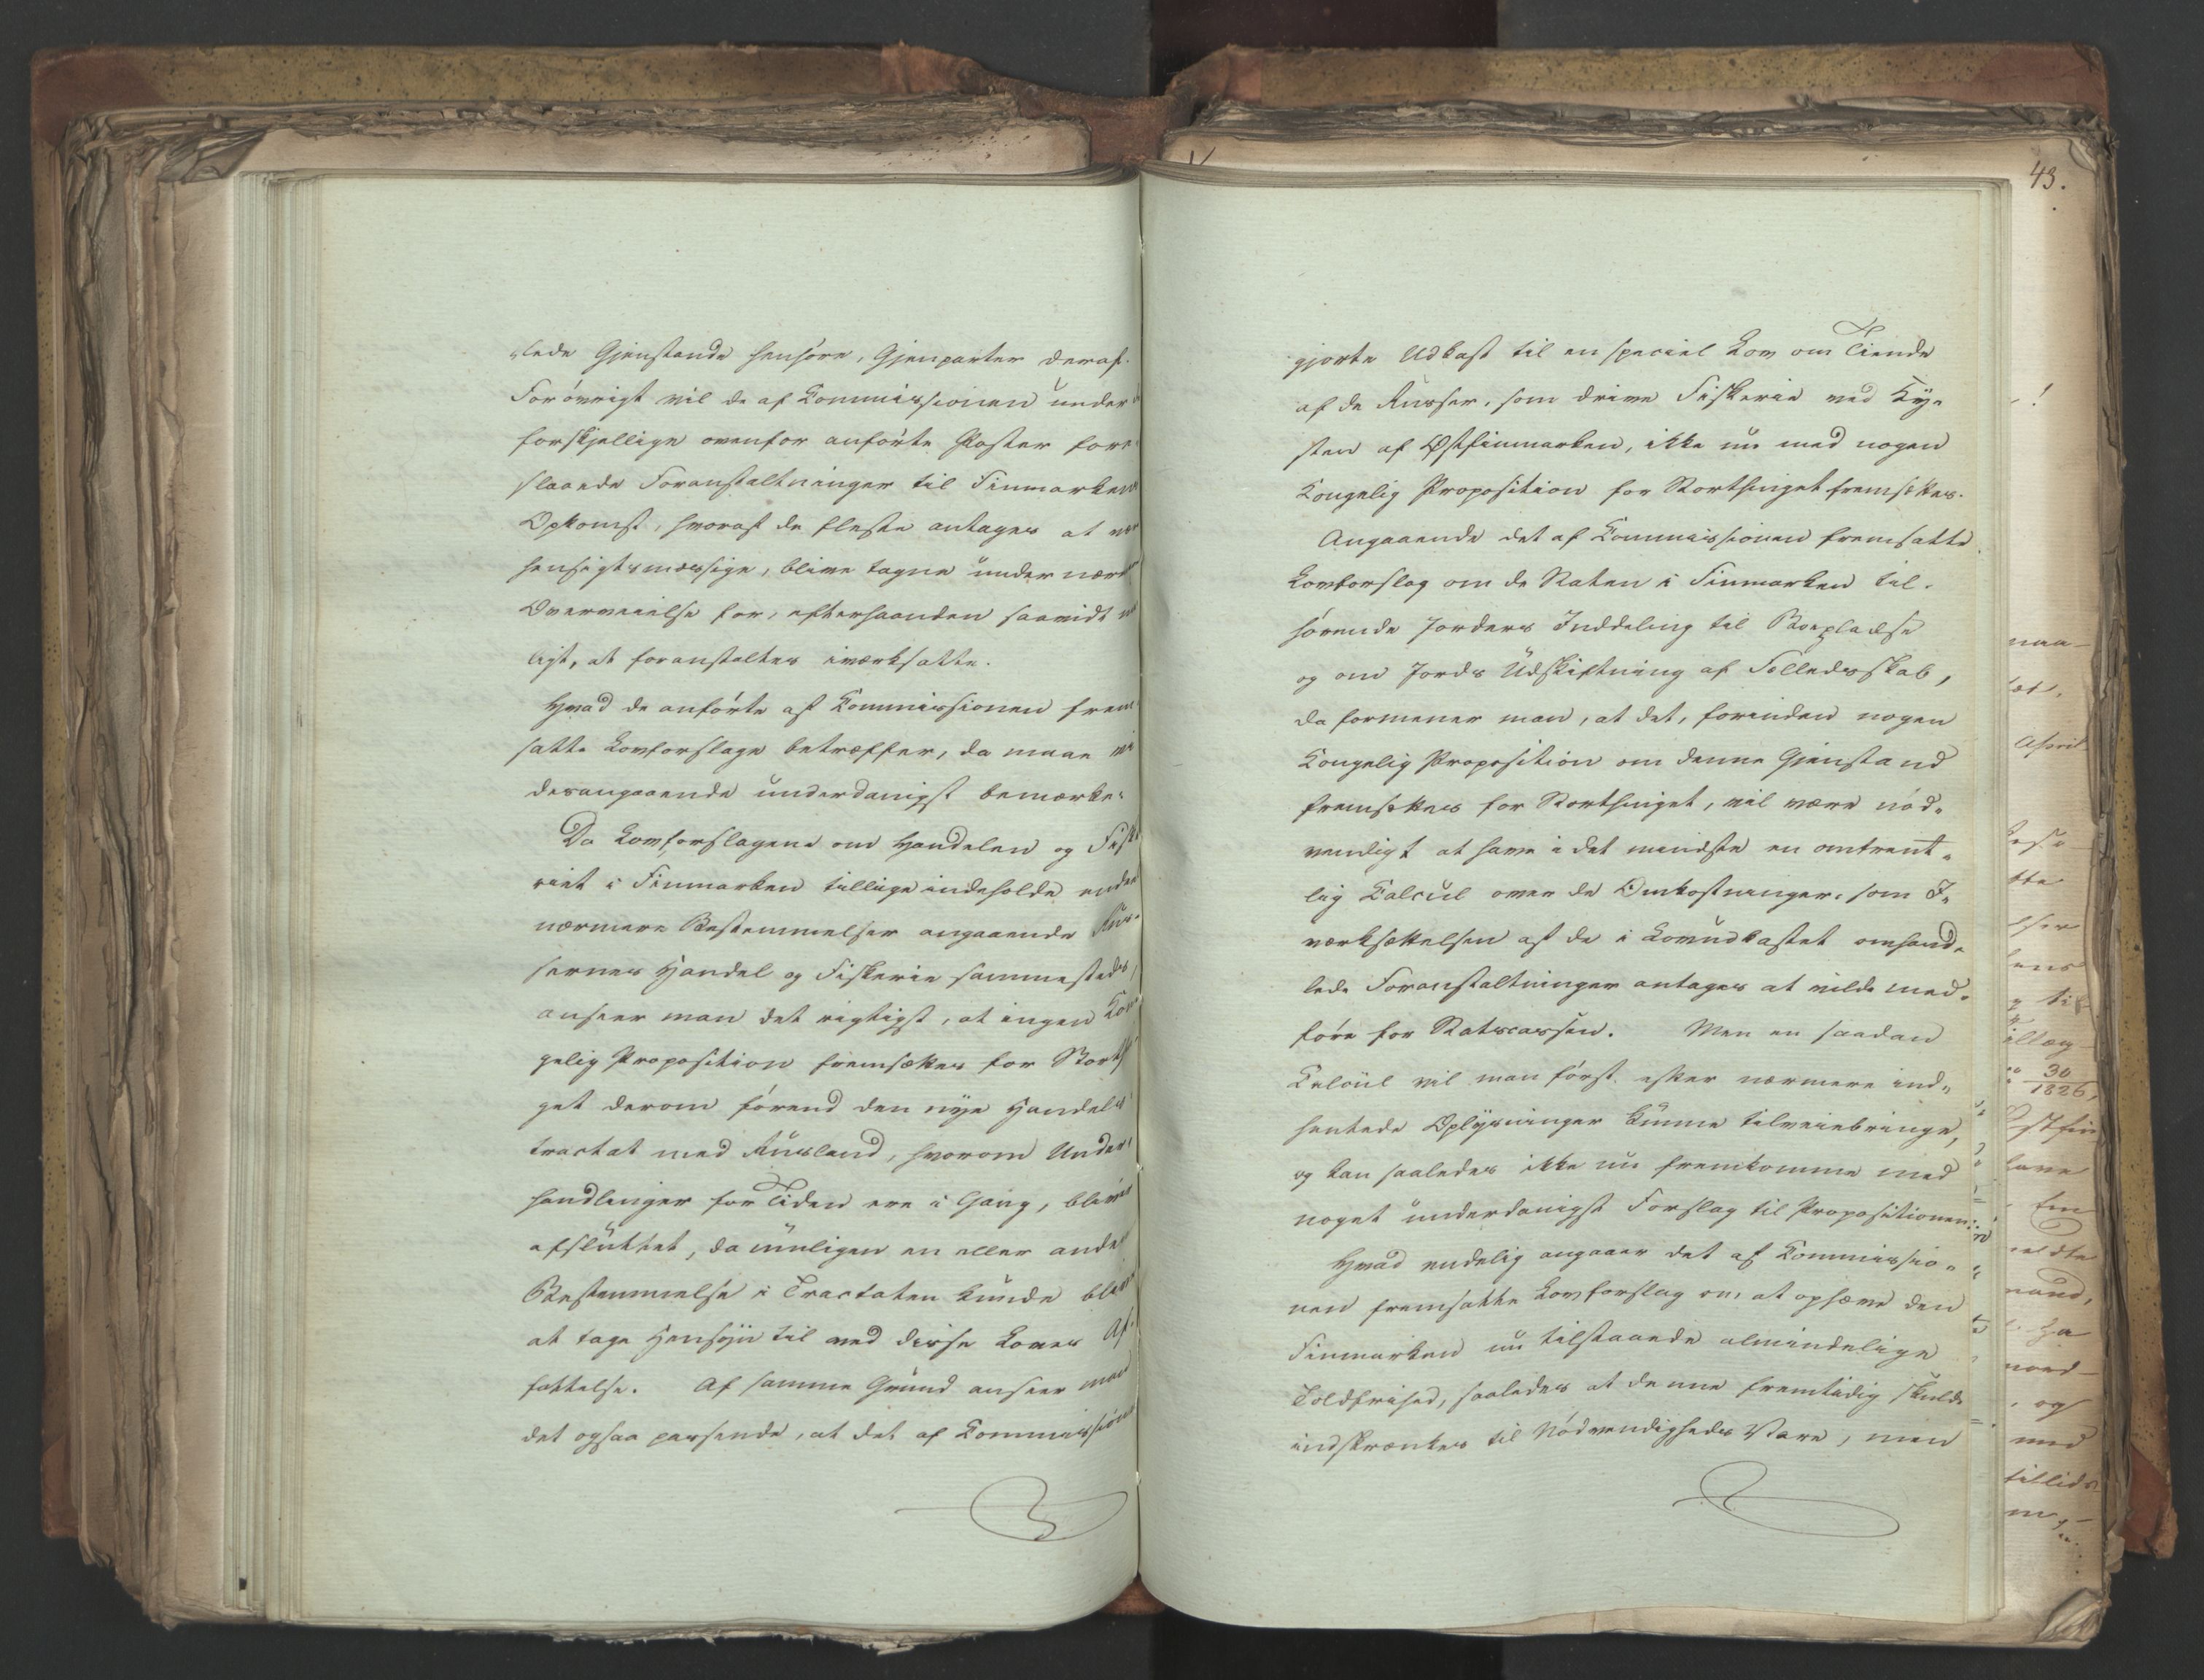 lede Gjenstande henhøre, Gjenparter deraf.
Forøvrigt vil de af Commissionen under
forskjellige ovenfor anførte Poster fore-
slaaede Foranstaltninger til Finmarkens
Opkomst, hvoraf de fleste antages at være
hensigtsmæssige, blive tagne under nærmere
Overveielse for, efterhaanden saavidt
ligt, at foranstaltes iværksatte.
Hvad de anførte af Commissionen frem-
satte Lovforslage betræffer, da maae vi
desangaaende underdanigst bemærke:
Da Lovforslagene om Handelen og Fiske-
riet i Finmarken tillige indeholde endeel
nærmere Bestemmelser angaaende Rus-
sernes Handel og Fiskerie sammesteds,
anseer man det rigtigst, at ingen Kon-
gelig Proposition fremsættes for Storthin-
get derom førend den nye Handels-
tractat med Rusland, hvorom Under-
handlinger for Tiden ere i Gang, bliver
afsluttet, da muligen en eller anden
Bestemmelse i Tractaten kunde blive
at tage Hensyn til ved disse Loves Af-
fattelse. Af samme Grund anseer man
det ogsaa passende, at det af Commissionen
43.
gjorte Udkast til en speciel Lov om Tiende
af de Russer, som drive Fiskerie ved Ky-
sten af Østfinmarken, ikke nu med nogen
Kongelig Proposition for Storthinget fremsættes.
Angaaende det af Commissionen fremsatte
Lovforslag om de Staten i Finmarken til-
hørende Jorders Inddeling til Boepladse
og om Jords Udskiftning af Fælledsskab,
da formener man, at det, forinden nogen
Kongelig Proposition om denne Gjenstand
fremsættes for Storthinget, vil være nød-
vendigt at have i det mindste en omtrent-
lig Calcul over de Omkostninger, som I-
værksættelsen af de i Lovudkastet omhand-
lede Foranstaltninger antages at vilde med-
føre for Statscassen. Men en saadan
Calcul vil man først efter nærmere ind-
hentede Oplysninger kunne tilveiebringe,
og kan saaledes ikke nu fremkomme med
noget underdanigst Forslag til Propositionen.
Hvad endelig angaaer det af Commissio-
nen fremsatte Lovforslag om at ophæve den
Finmarken nu tilstaaede almindelige
Toldfrihed, saaledes at denne fremtidig skulde
indskrænkes til Nødvendigheds Vare, men
April
30
1826,